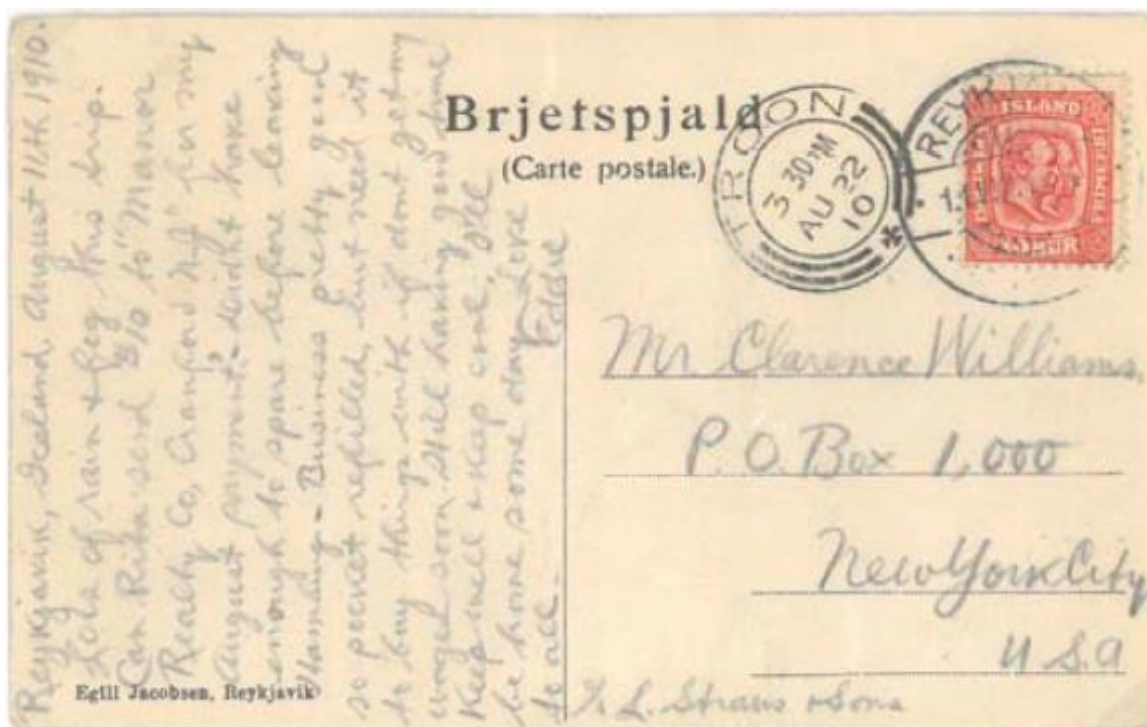 Reykjavik, Iceland August 11th 1910.
Lots of rain + fog this trip.
Can Rika send $10 to "Manor
Realty Co, Cranford N.J." for my
August payment. didnt have
enough to spare before leaving
Hamburg - Business pretty good
so pocket refilled, but need it
to buy things with if dont get my
wages soon still having good time
Keep well + keep cool, I'll
be home some day. Love
to all. Eddie
Brjefspjald
(Carte postale.)
TROON
3 30 PM
AU 22
10
REYK
ISLAND
Mr Clarence Williams,
P. O. Box 1,000
New York City
U S. A
L. Straus & Sons
Egill Jacobsen, Reykjavik